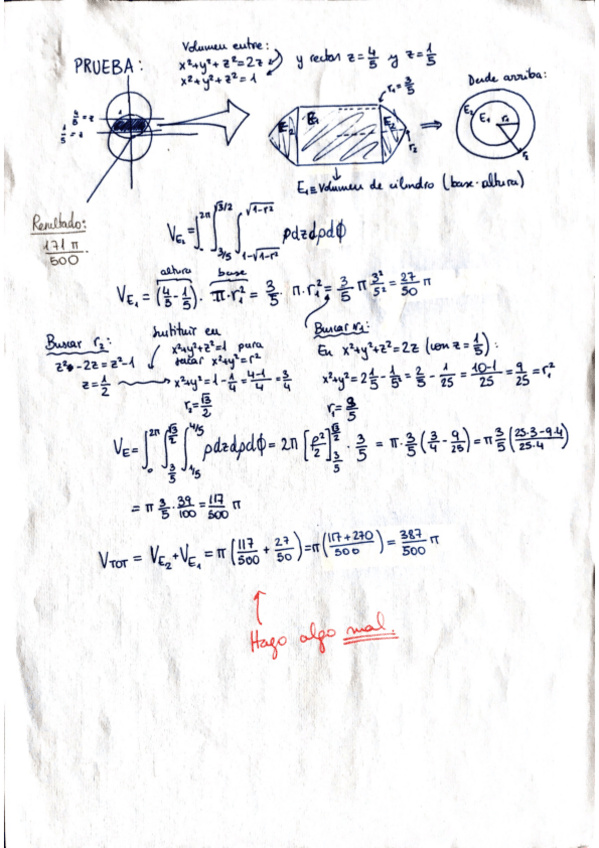 PRUEBA:
Volumen entre:
x²+y²+z²=2z
x²+y²+z²=1
y rectas z=4/5 y z=1/5
Desde arriba:
4/5=z
1/5=z
E₂ E₁ E₂
r₁=3/5
r₂
⇒
E₂ E₁ r₁
r₂
E₁≡Volumen de cilindro (base·altura)
Resultado:
171π/500
V_E₂ = ∫₀^2π ∫_3/5^√3/2 ∫_1-√1-r²^√1-r² ρdzdρdϕ
altura base
V_E₁ = (4/5-1/5)· π·r₁² = 3/5 · π·r₁² = 3/5 π 3²/5² = 27/50 π
Buscar r₂:
z²-2z=z²-1
z=1/2
Sustituir en
x²+y²+z²=1 para
sacar x²+y²=r²
x²+y²=1-1/4=4-1/4=3/4
r₂=√3/2
Buscar r₁:
En x²+y²+z²=2z (con z=1/5):
x²+y²=2 1/5-1/5²=2/5-1/25=10-1/25=9/25=r₁²
r₁=3/5
V_E=∫₀^2π ∫_3/5^√3/2 ∫_1/5^4/5 ρdzdρdϕ=2π [ρ²/2]_3/5^√3/2 · 3/5 = π·3/5(3/4-9/25)=π3/5(25·3-9·4/25·4)
=π 3/5·39/100=117/500 π
V_TOT = V_E₂+V_E₁ = π(117/500+27/50)=π(117+270/500)=387/500 π
Hago algo mal.